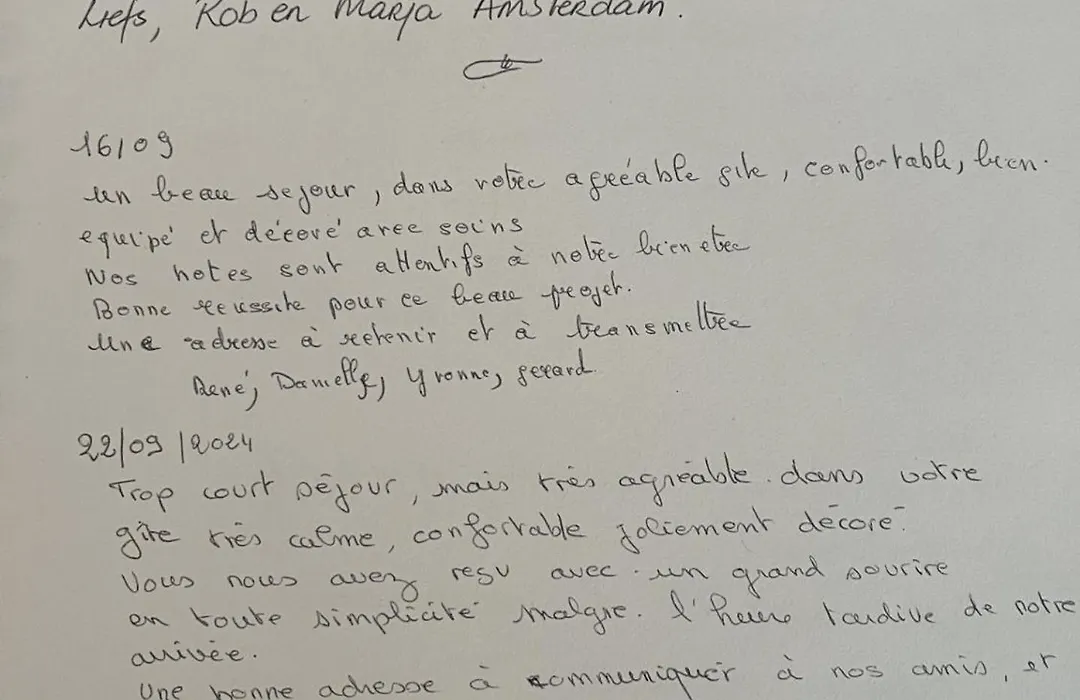 Liefs, Rob en Marja Amsterdam.
16/09
un beau sejour, dans votre agréable gite, confortable, bien.
equipé et décoré avec soins
Nos hotes sont attentifs à notre bien etre
Bonne reussite pour ce beau projet.
Une adresse à retenir et à transmettre
René, Danielle, Yvonne, gerard.
22/09/2024
Trop court séjour, mais très agréable. dans votre
gîte très calme, confortable joliement décoré.
Vous nous avez resu avec un grand sourire
en toute simplicité malgre. l'heure tardive de notre
arrivée.
Une bonne adresse à communiquer à nos amis, et